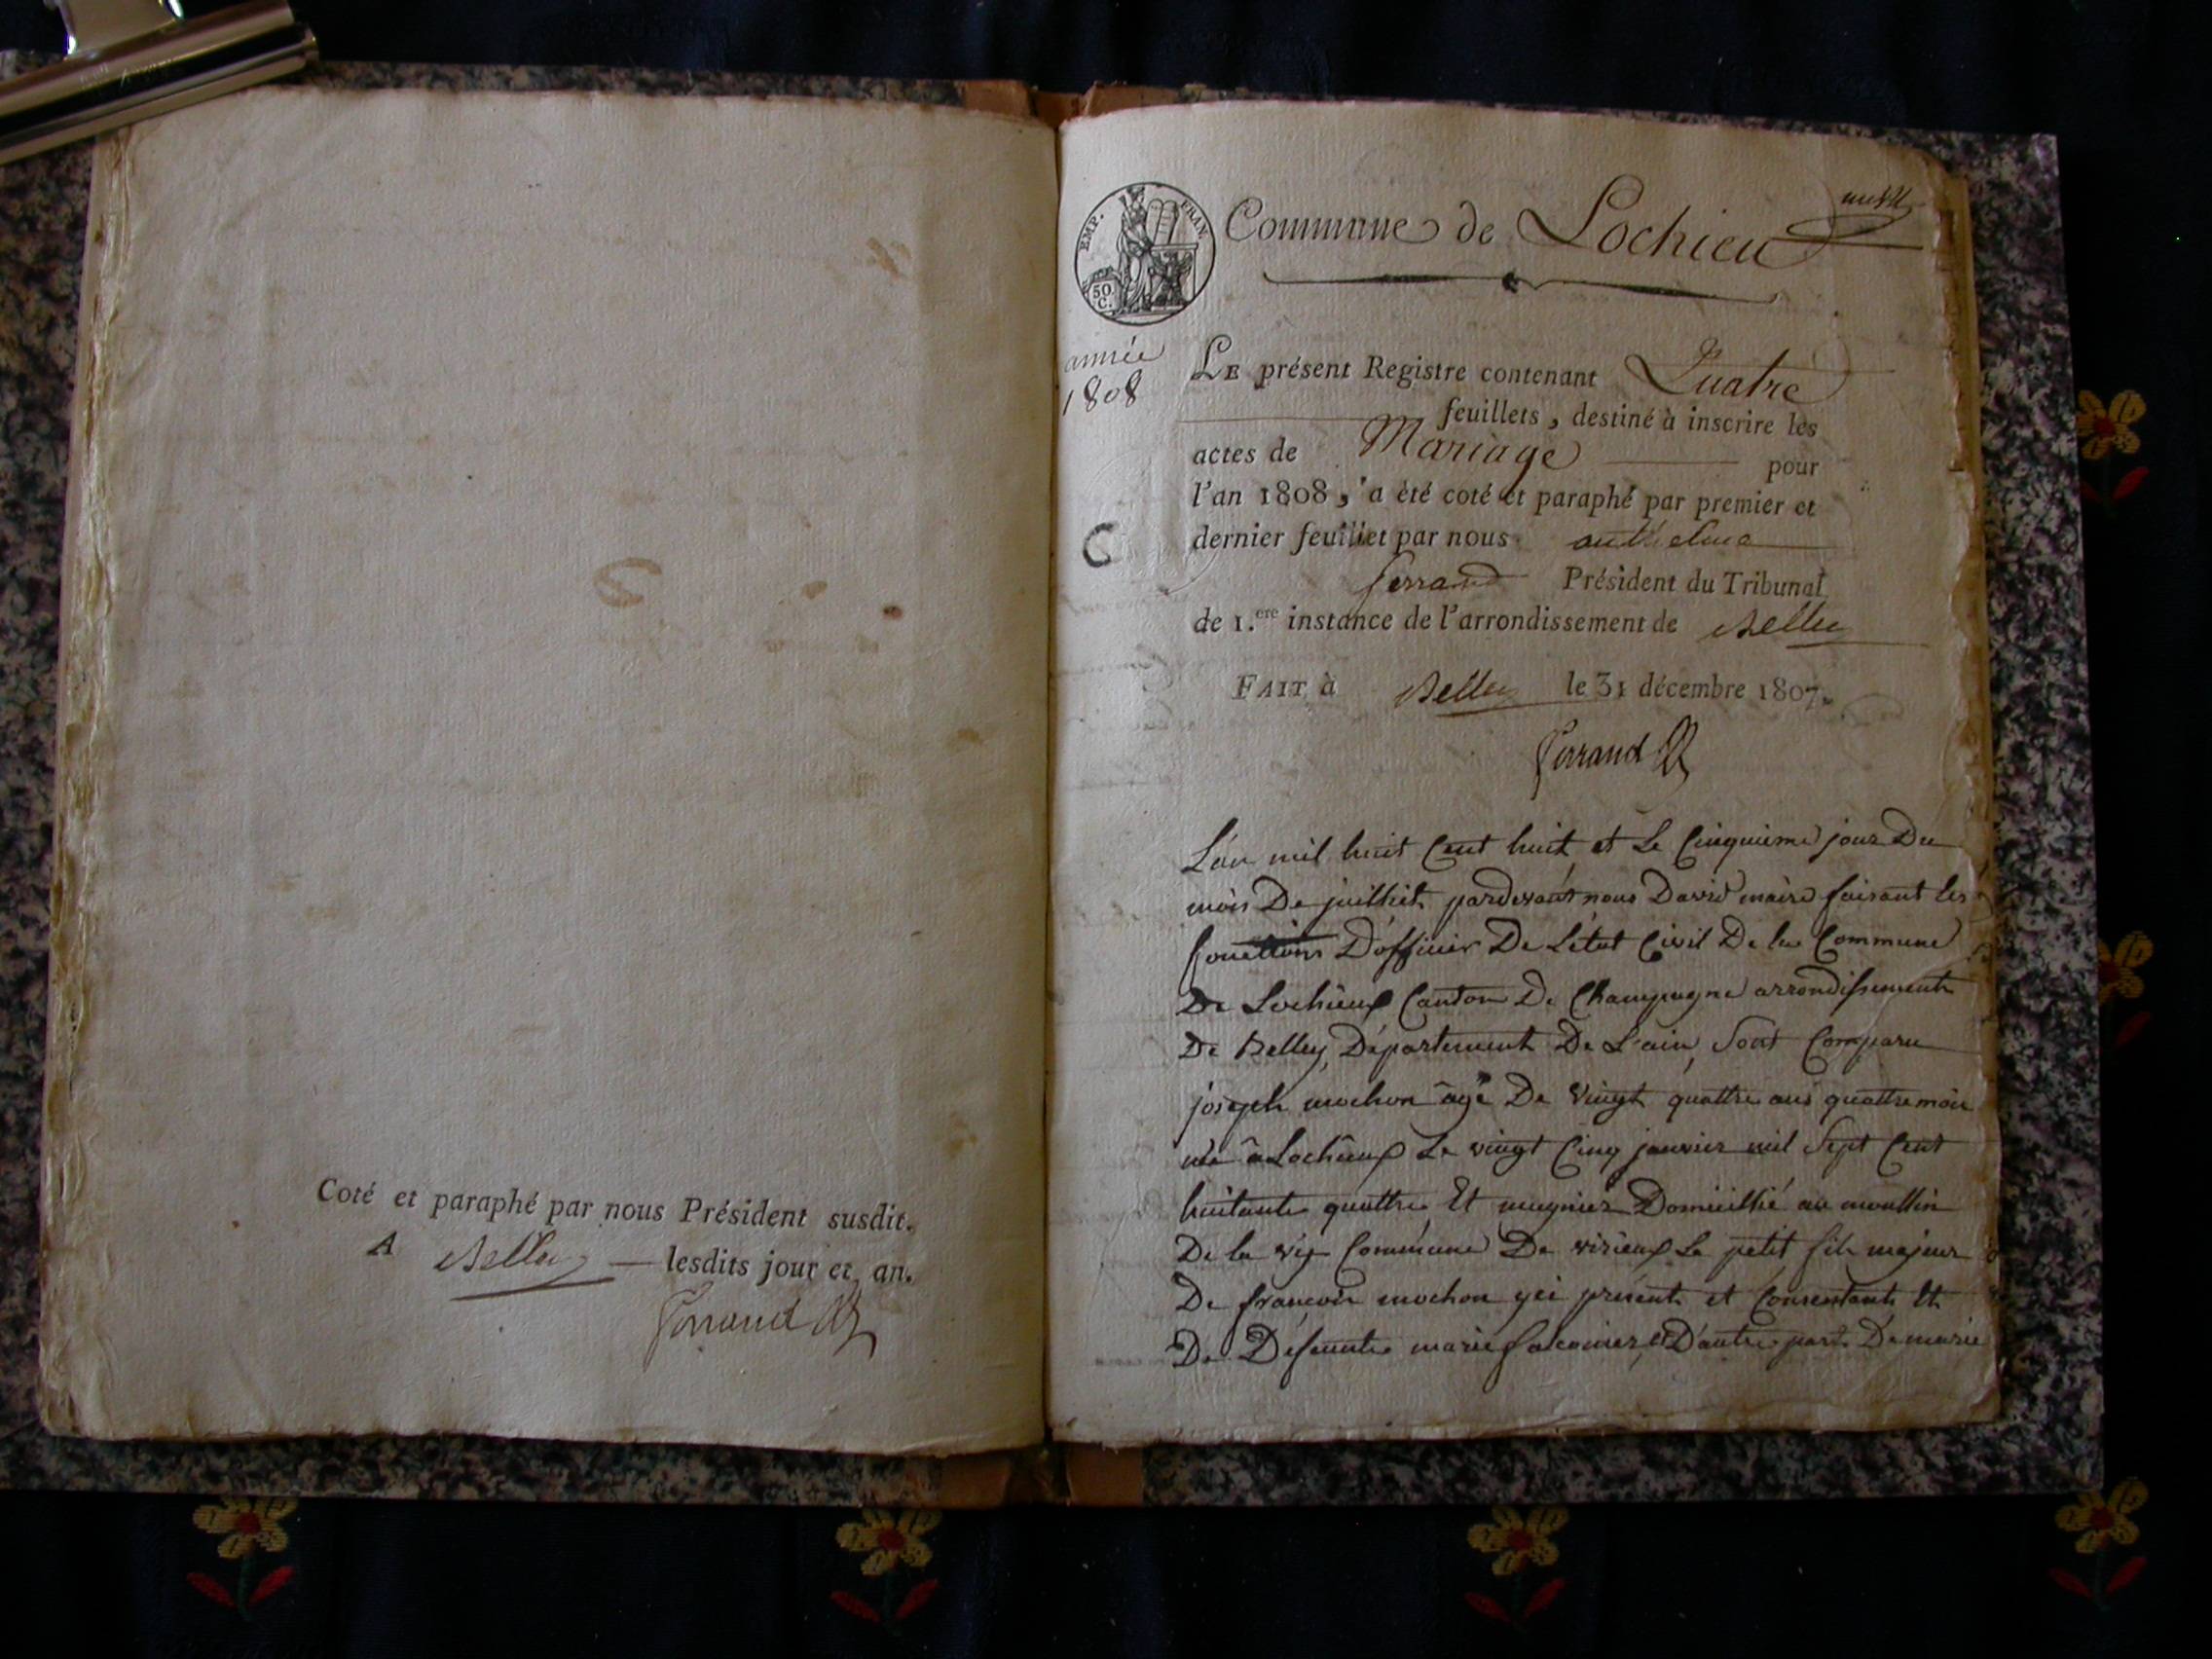 Coté et paraphé par nous Président susdit.
A Belley lesdits jour et an.
Ferrand
EMP. FRAN.
50 C.
Commune de Lochieu
année
1808
LE présent Registre contenant Quatre
feuillets, destiné à inscrire les
actes de Mariage pour
l'an 1808, a été coté et paraphé par premier et
dernier feuillet par nous anthelme
ferrand Président du Tribunal
de 1.ere instance de l'arrondissement de Belley
FAIT à Belley le 31 décembre 1807.
Ferrand
C
L'an mil huit Cent huit et Le Cinquieme jour Du
mois De juillet pardevant nous David maire faisant les
fonctions D'officier De L'état Civil De la Commune
De Lochieux Canton De Champagne arrondissement
De Belley, Département De L'ain, Sont Comparu
joseph mochon âgé De vingt quattre ans quattre mois
né à Lochieux Le vingt Cinq janvier mil Sept Cent
huitante quattre Et mugnier Domicillié au moullin
De la Commune De virieux Le petit fils majeur
De francois mochon yci présent et Consentant Et
De Défeunte marie et D'autre part De marie